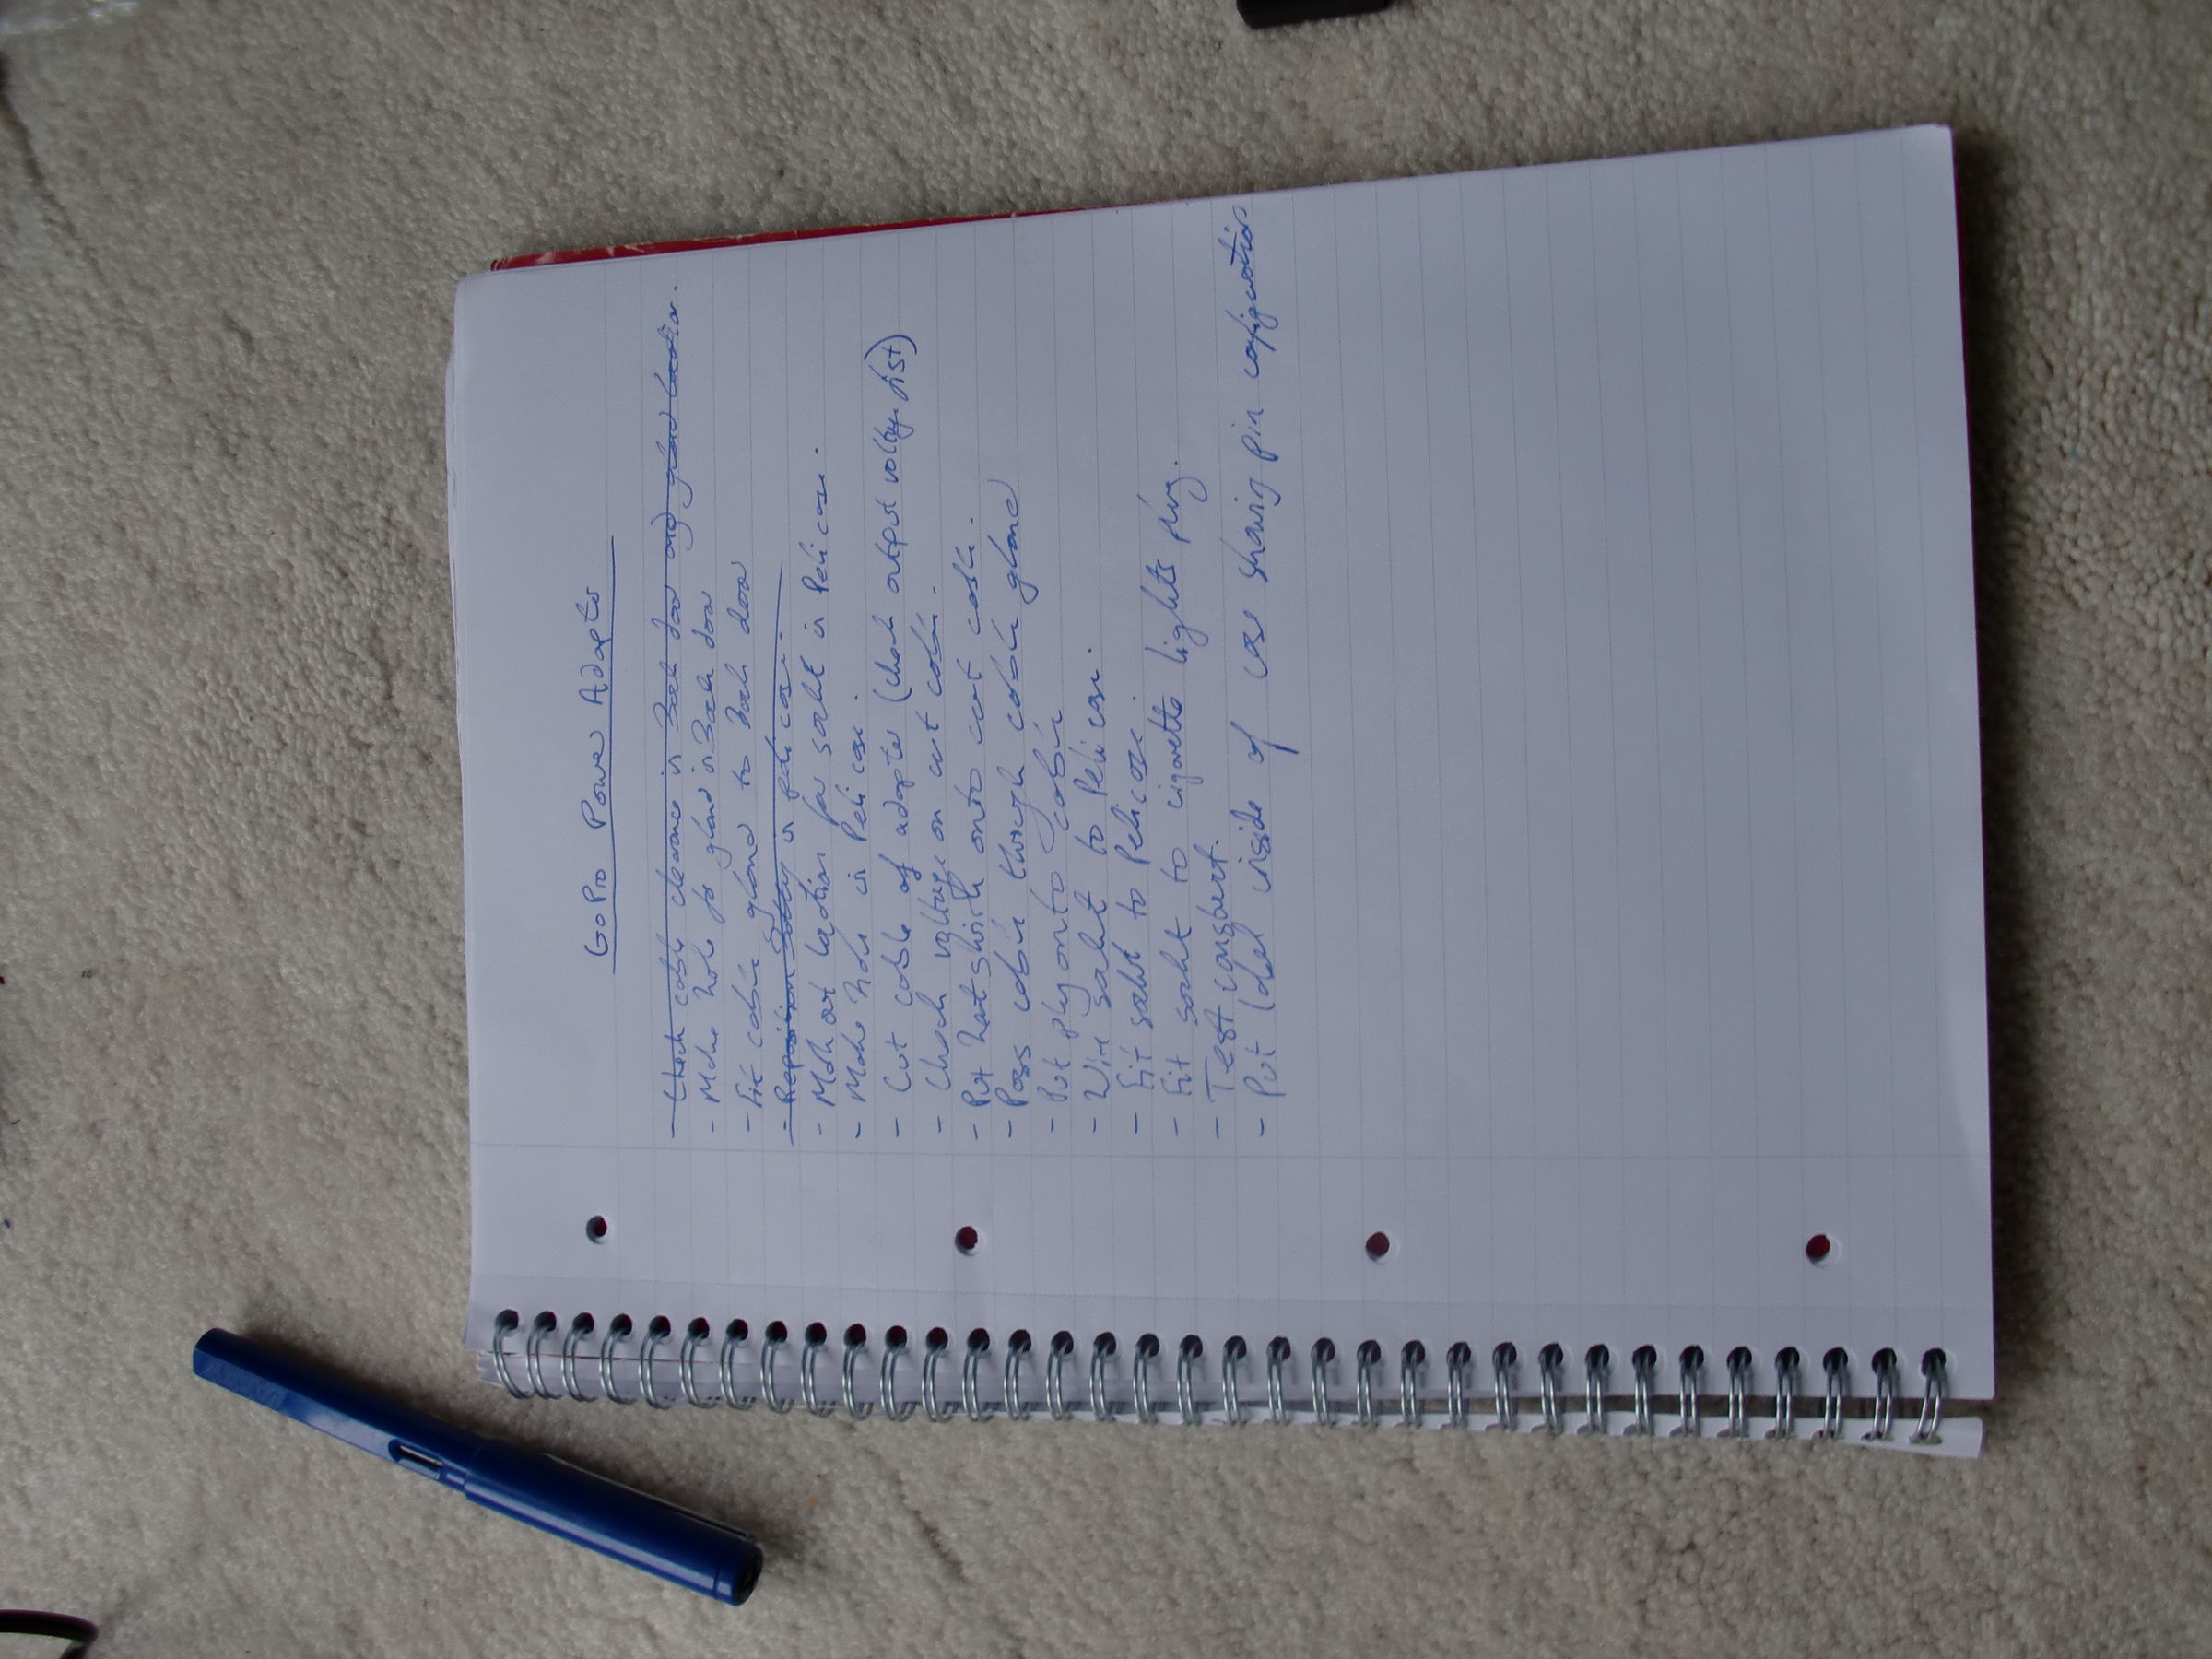 GoPro Power Adapter
- Check cable clearance in back door and gland location.
- Make hole for gland in Back door
- Fit cable gland to back door
- Reposition Battery in peli case.
- Mark out location for socket in Peli case.
- Make hole in Peli case.
- Cut cable of adapter (check output voltage first)
- Check voltage on cut cable.
- Put heatshrink onto cut cable.
- Pass cable through cable gland
- Put plug onto cable
- Wire socket to Peli case.
- Fit socket to Peli case
- Fit socket to cigarette lighter plug.
- Test
- Put label inside of case showing pin configuration